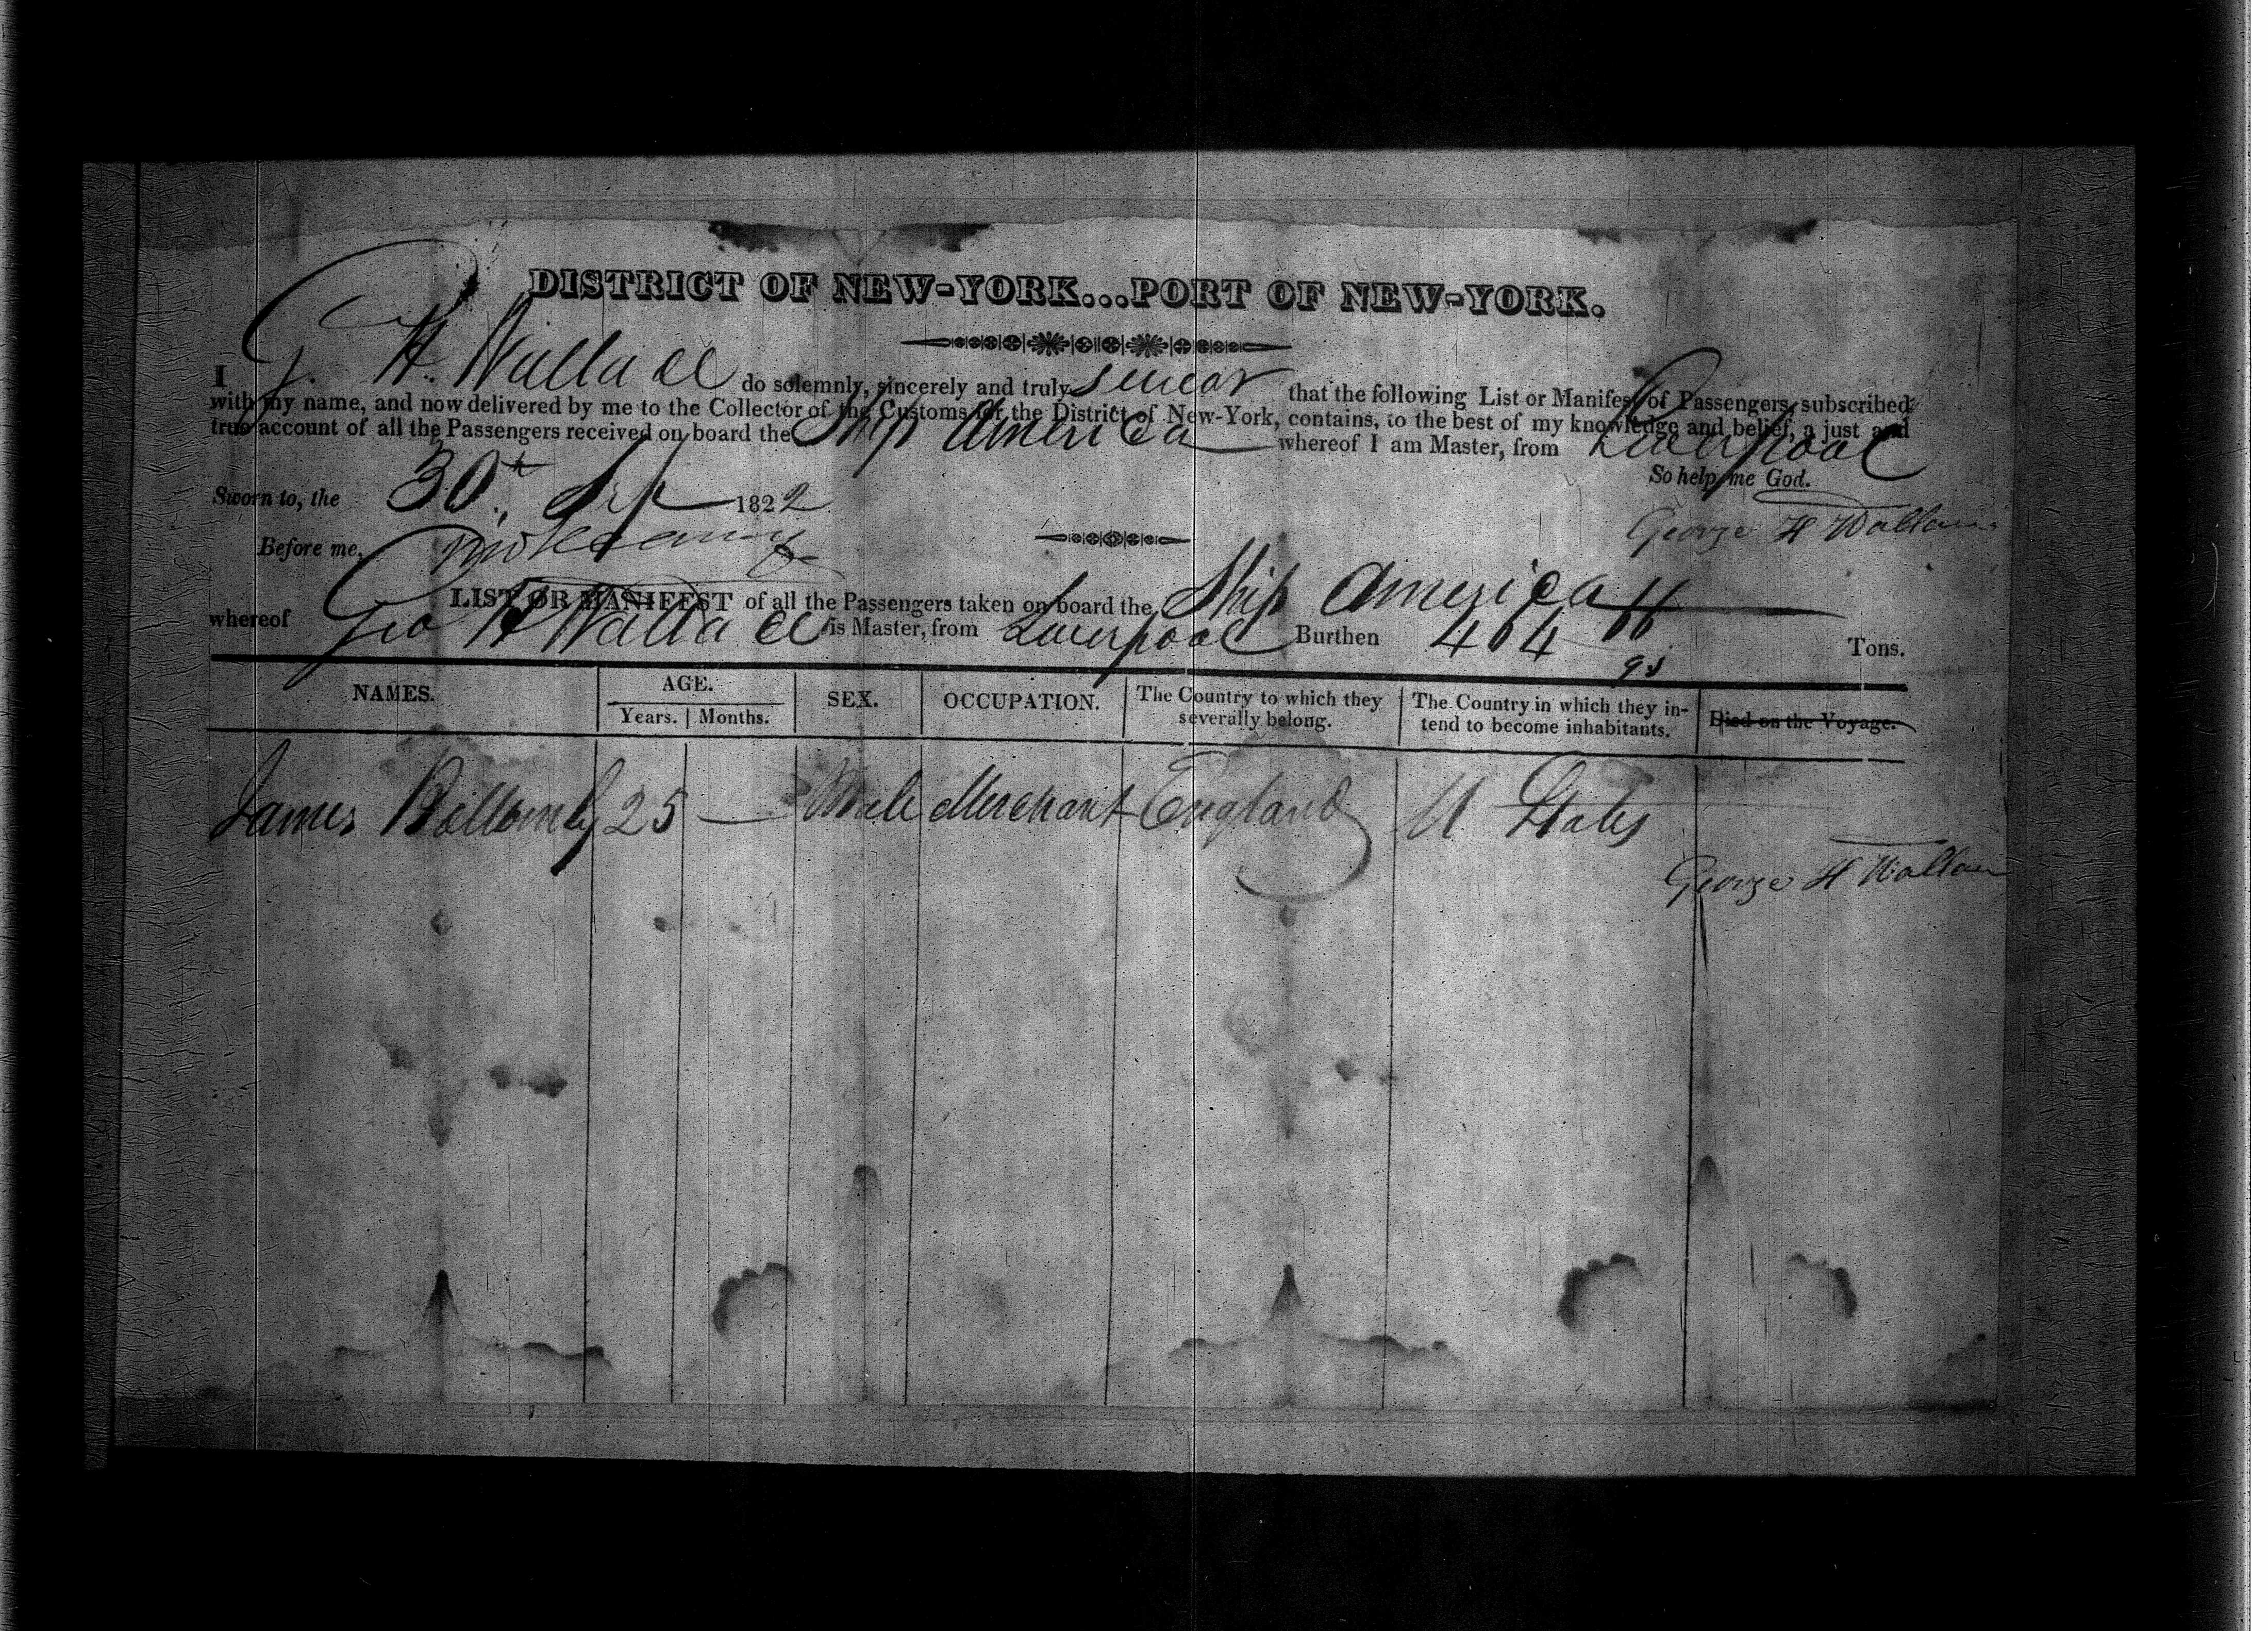 DISTRICT OF NEW-YORK...PORT OF NEW-YORK.
I G. H. Wallace do solemnly, sincerely and truly swear that the following List or Manifest of Passengers, subscribed
with my name, and now delivered by me to the Collector of the Customs for the District of New-York, contains, to the best of my knowledge and belief, a just and
true account of all the Passengers received on board the Ship America whereof I am Master, from Liverpool
So help me God.
Sworn to, the 30th Sep 1822
George H Wallace
Before me,
LIST OR MANIFEST of all the Passengers taken on board the Ship America
whereof Geo H Wallace is Master, from Liverpool Burthen 464 66/95 Tons.
NAMES. AGE. SEX. OCCUPATION. The Country to which they severally belong. The Country in which they intend to become inhabitants. Died on the Voyage.
Years. Months.
James 25 — Male Merchant England U States
George H Wallace